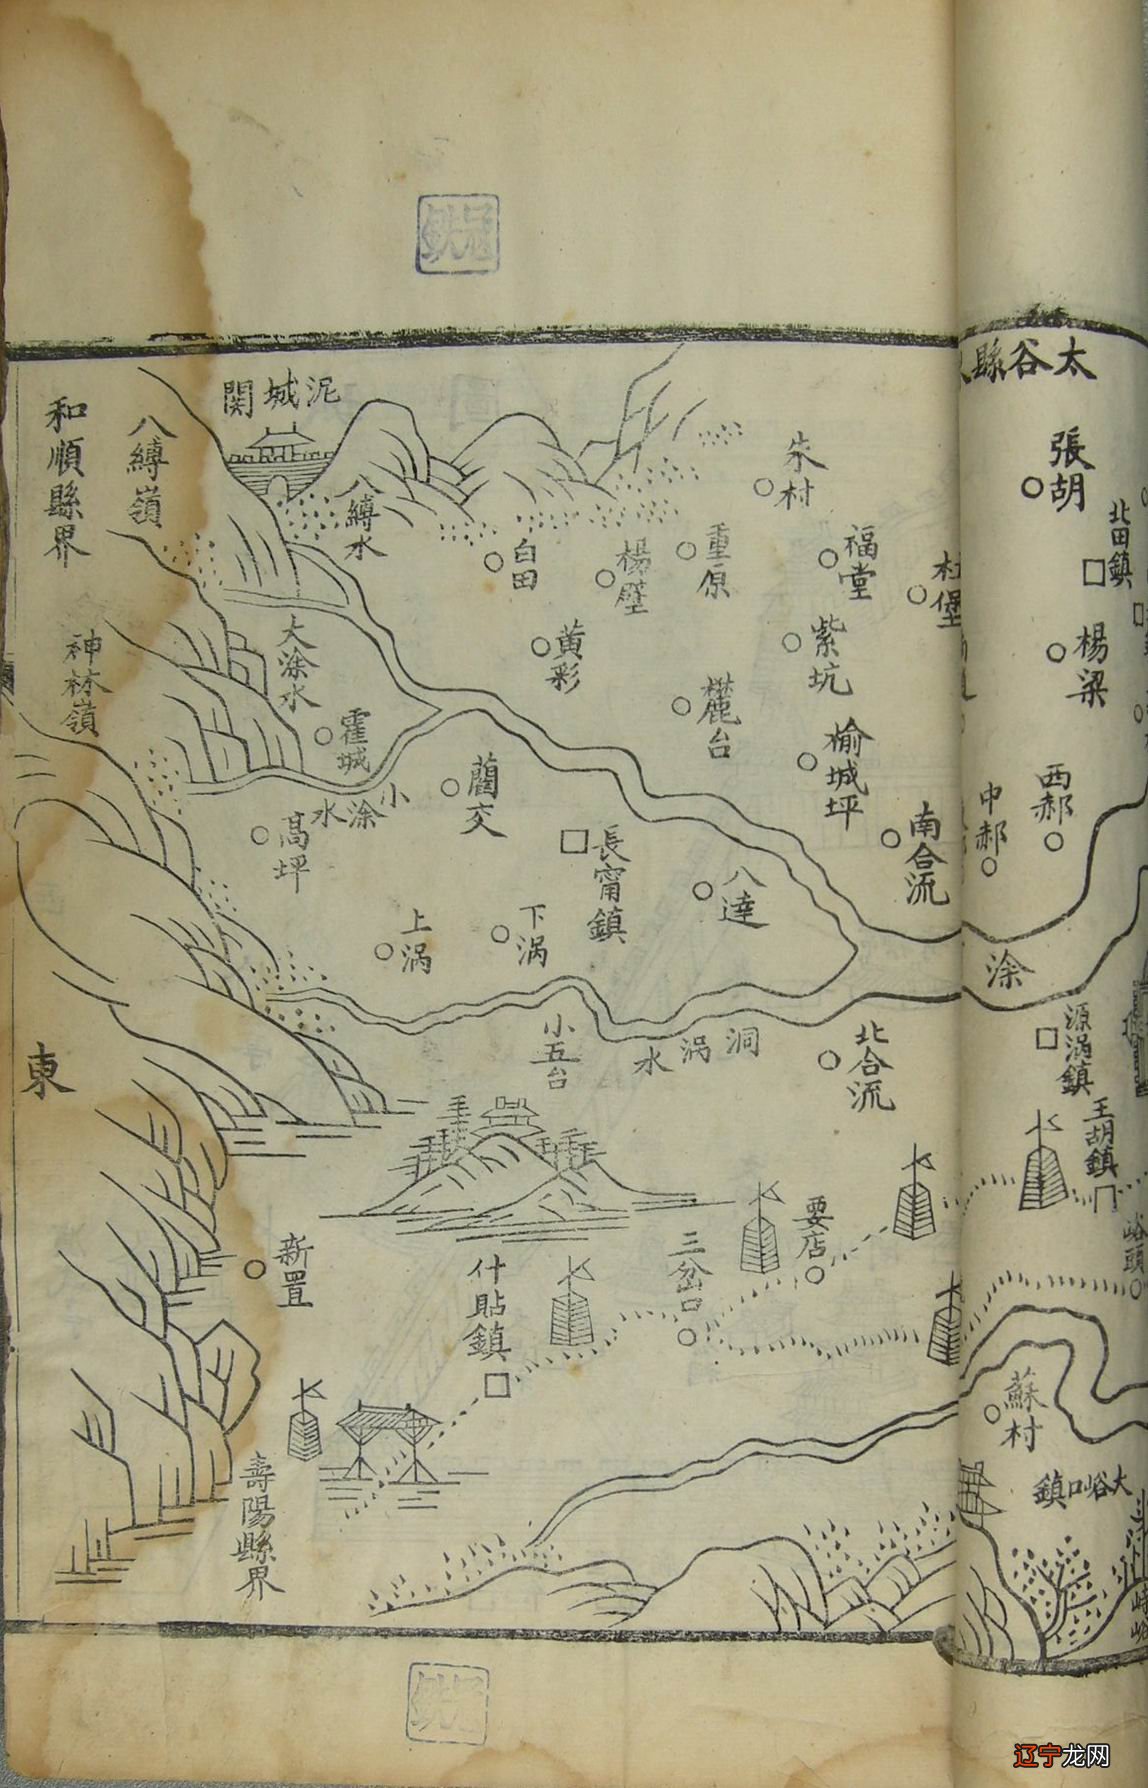 太谷縣
張胡
北田鎮
楊梁
西郝
中郝
涂
源涡鎮
王胡鎮
峪頭
蘇村
大峪口鎮
泥城関
八縳嶺
和順縣界
八縳水
神林嶺
大涂水
霍城
小涂水
高坪
白田
楊壁
重原
朱村
福堂
杜堡
黄彩
紫坑
樾台
榆城坪
藺交
長甯鎮
八達
南合流
上涡
下涡
小五台
洞涡水
北合流
東
新置
什貼鎮
三岔口
要店
壽陽縣界
辽宁龙网